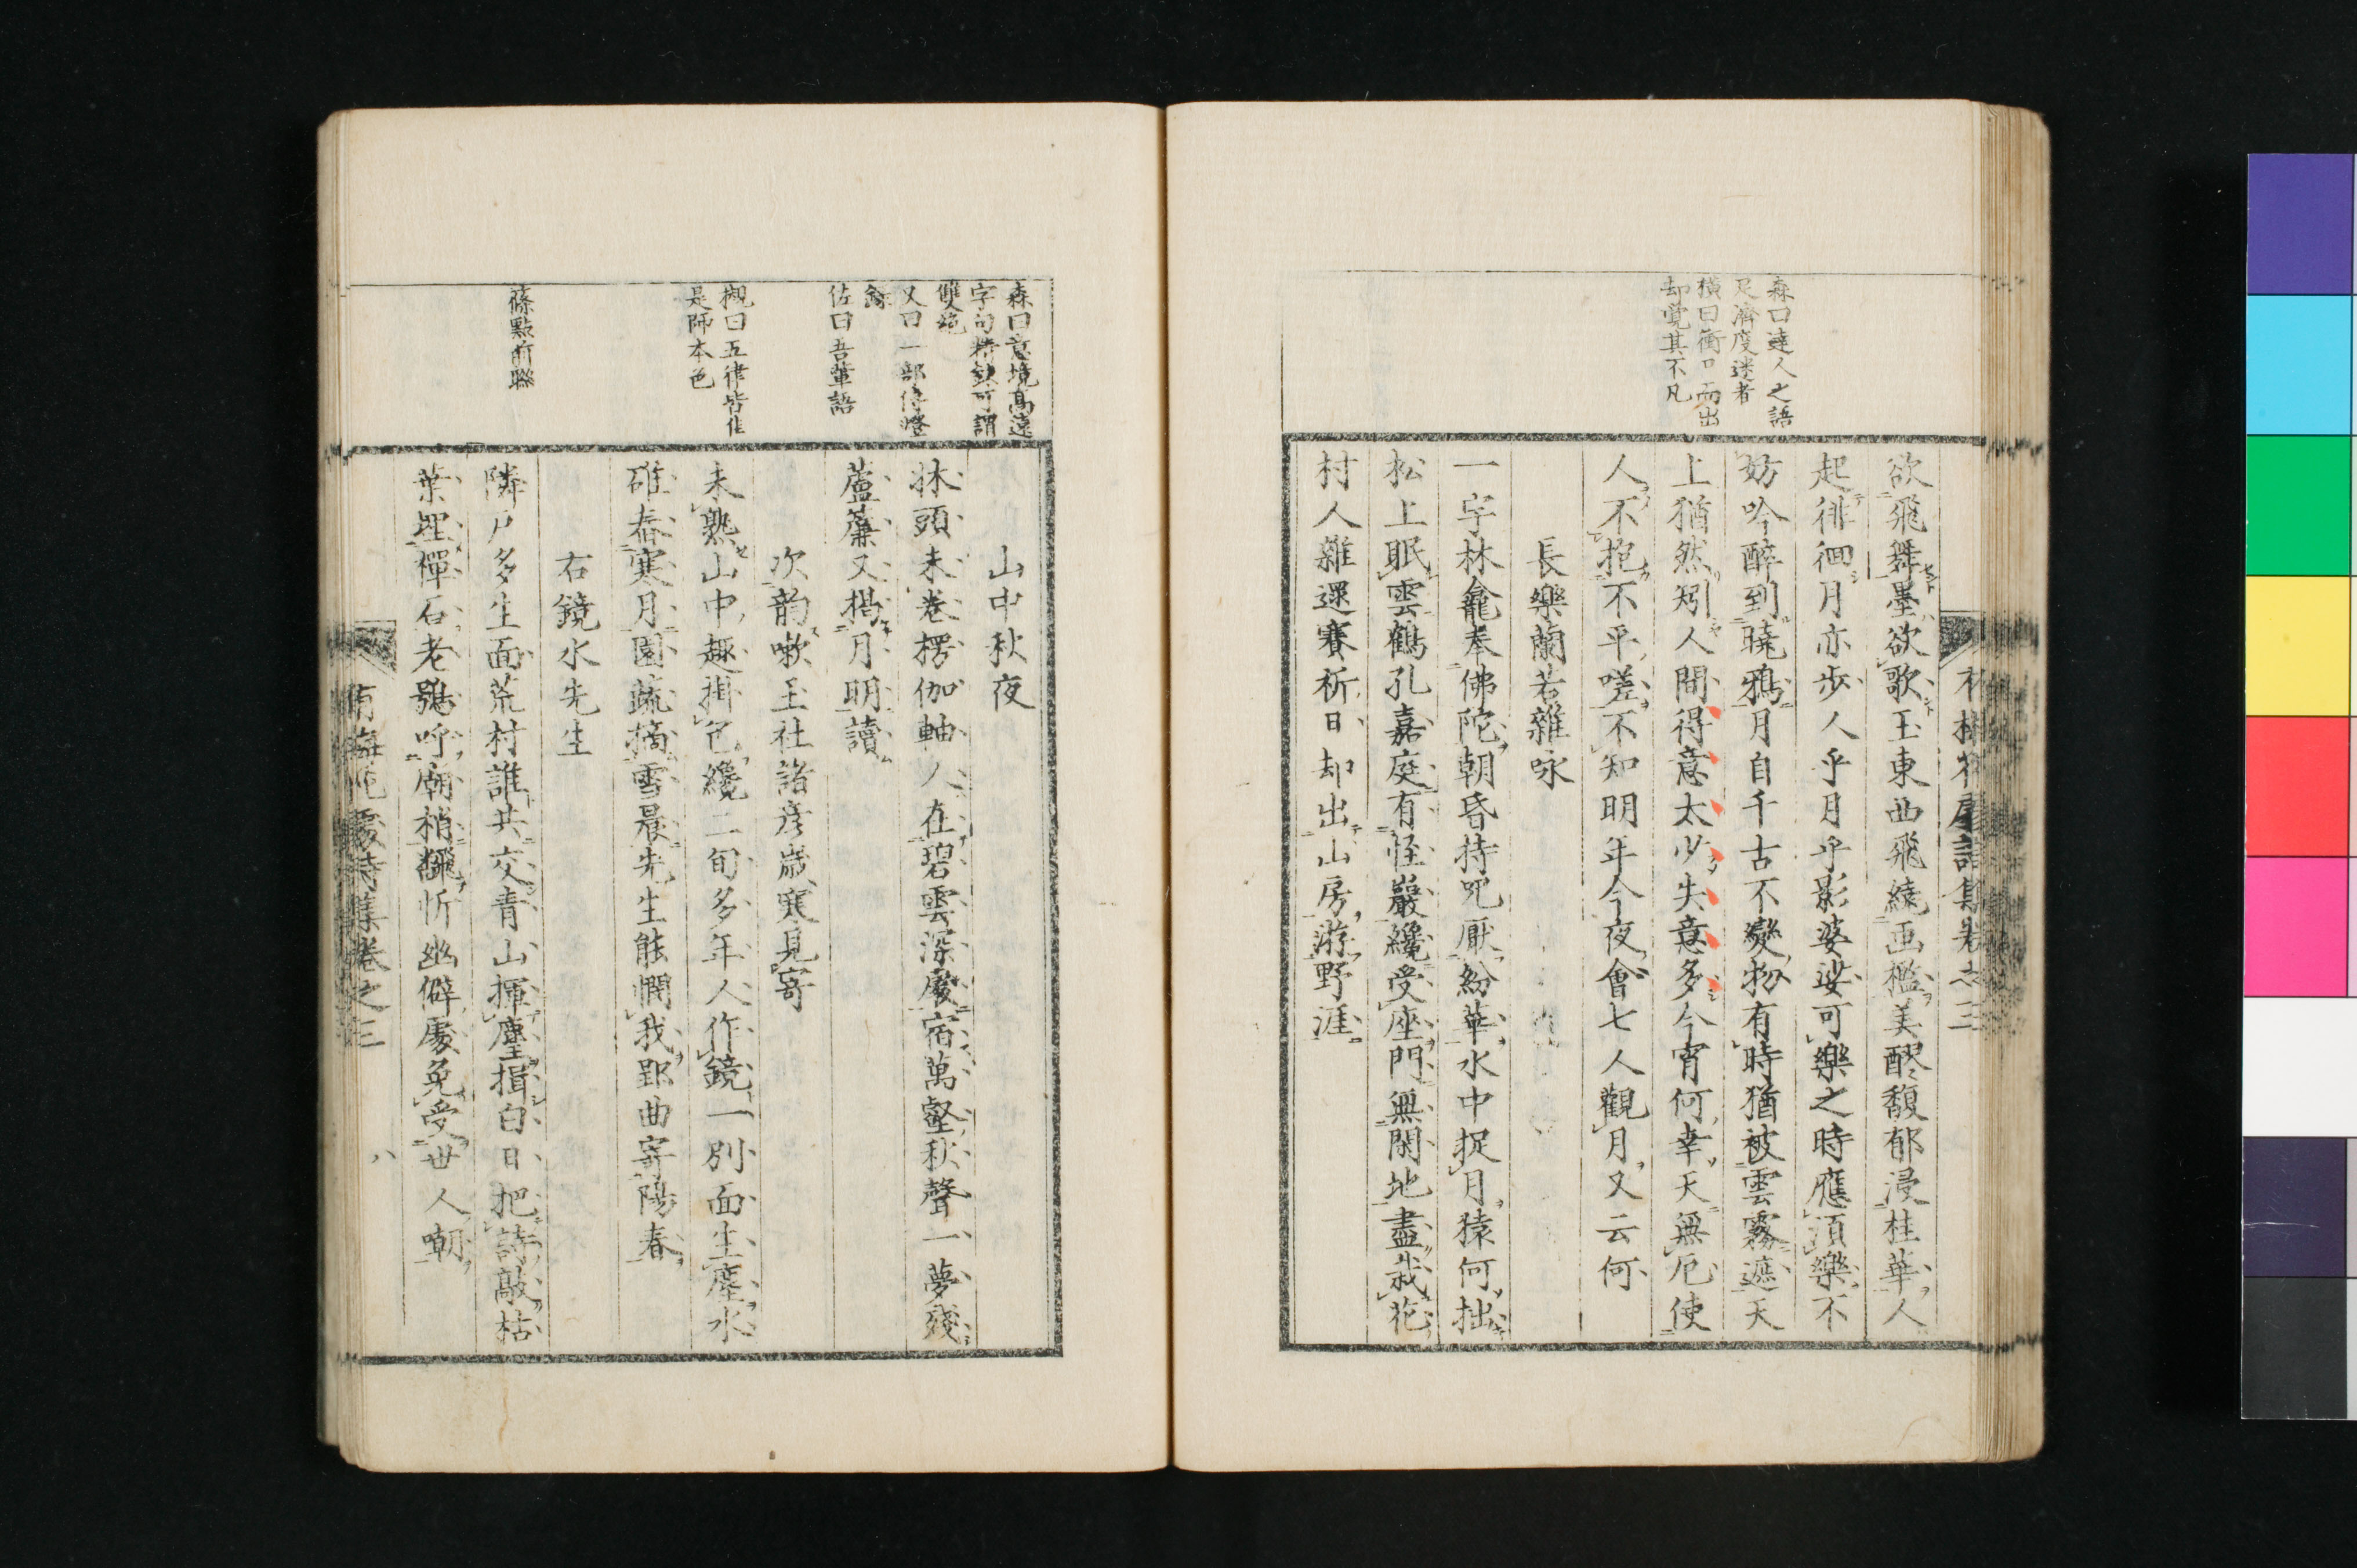 森曰達人之語
足濟度迷者
橫曰衝口而出
却覺其不凡
欲飛舞墨欲歌玉東西飛繞画檻美醪馥郁浸桂華人
起徘徊月亦步人乎月乎影婆娑可樂之時應須樂不
妨吟醉到曉鴉月自千古不變物有時猶被雲霧遮天
上猶然矧人間得意太少失意多今宵何幸天無厄使
人不抱不平嗟不知明年今夜會七人觀月又云何
長樂蘭若雜咏
一宇林龕奉佛陀朝昏持咒厭紛華水中捉月猿何拙
松上眠雲鶴孔嘉庭有怪巖纔受座門無閑地盡栽花
村人雜還賽祈日却出山房游野涯
森曰意境高遠
字句精鍊可謂
雙絶
又曰一部傳燈
錄
佐曰吾輩語
槻曰五律皆佳
是師本色
篠點前聯
山中秋夜
牀頭未卷楞伽軸人在碧雲深處宿萬壑秋聲一夢殘
蘆簾又揭月明讀
次韵嗽玉社諸彦歲寒見寄
未熟山中趣掛包纔二旬多年人作鏡一別面生塵水
碓舂寒月園蔬摘雪晨先生能憫我郢曲寄陽春
右鏡水先生
隣戶多生面荒村誰共交青山揮麈揖白日把詩敲枯
葉埋禪石老鴞呼廟梢飜忻幽僻處免受世人嘲
詩集卷之三
八